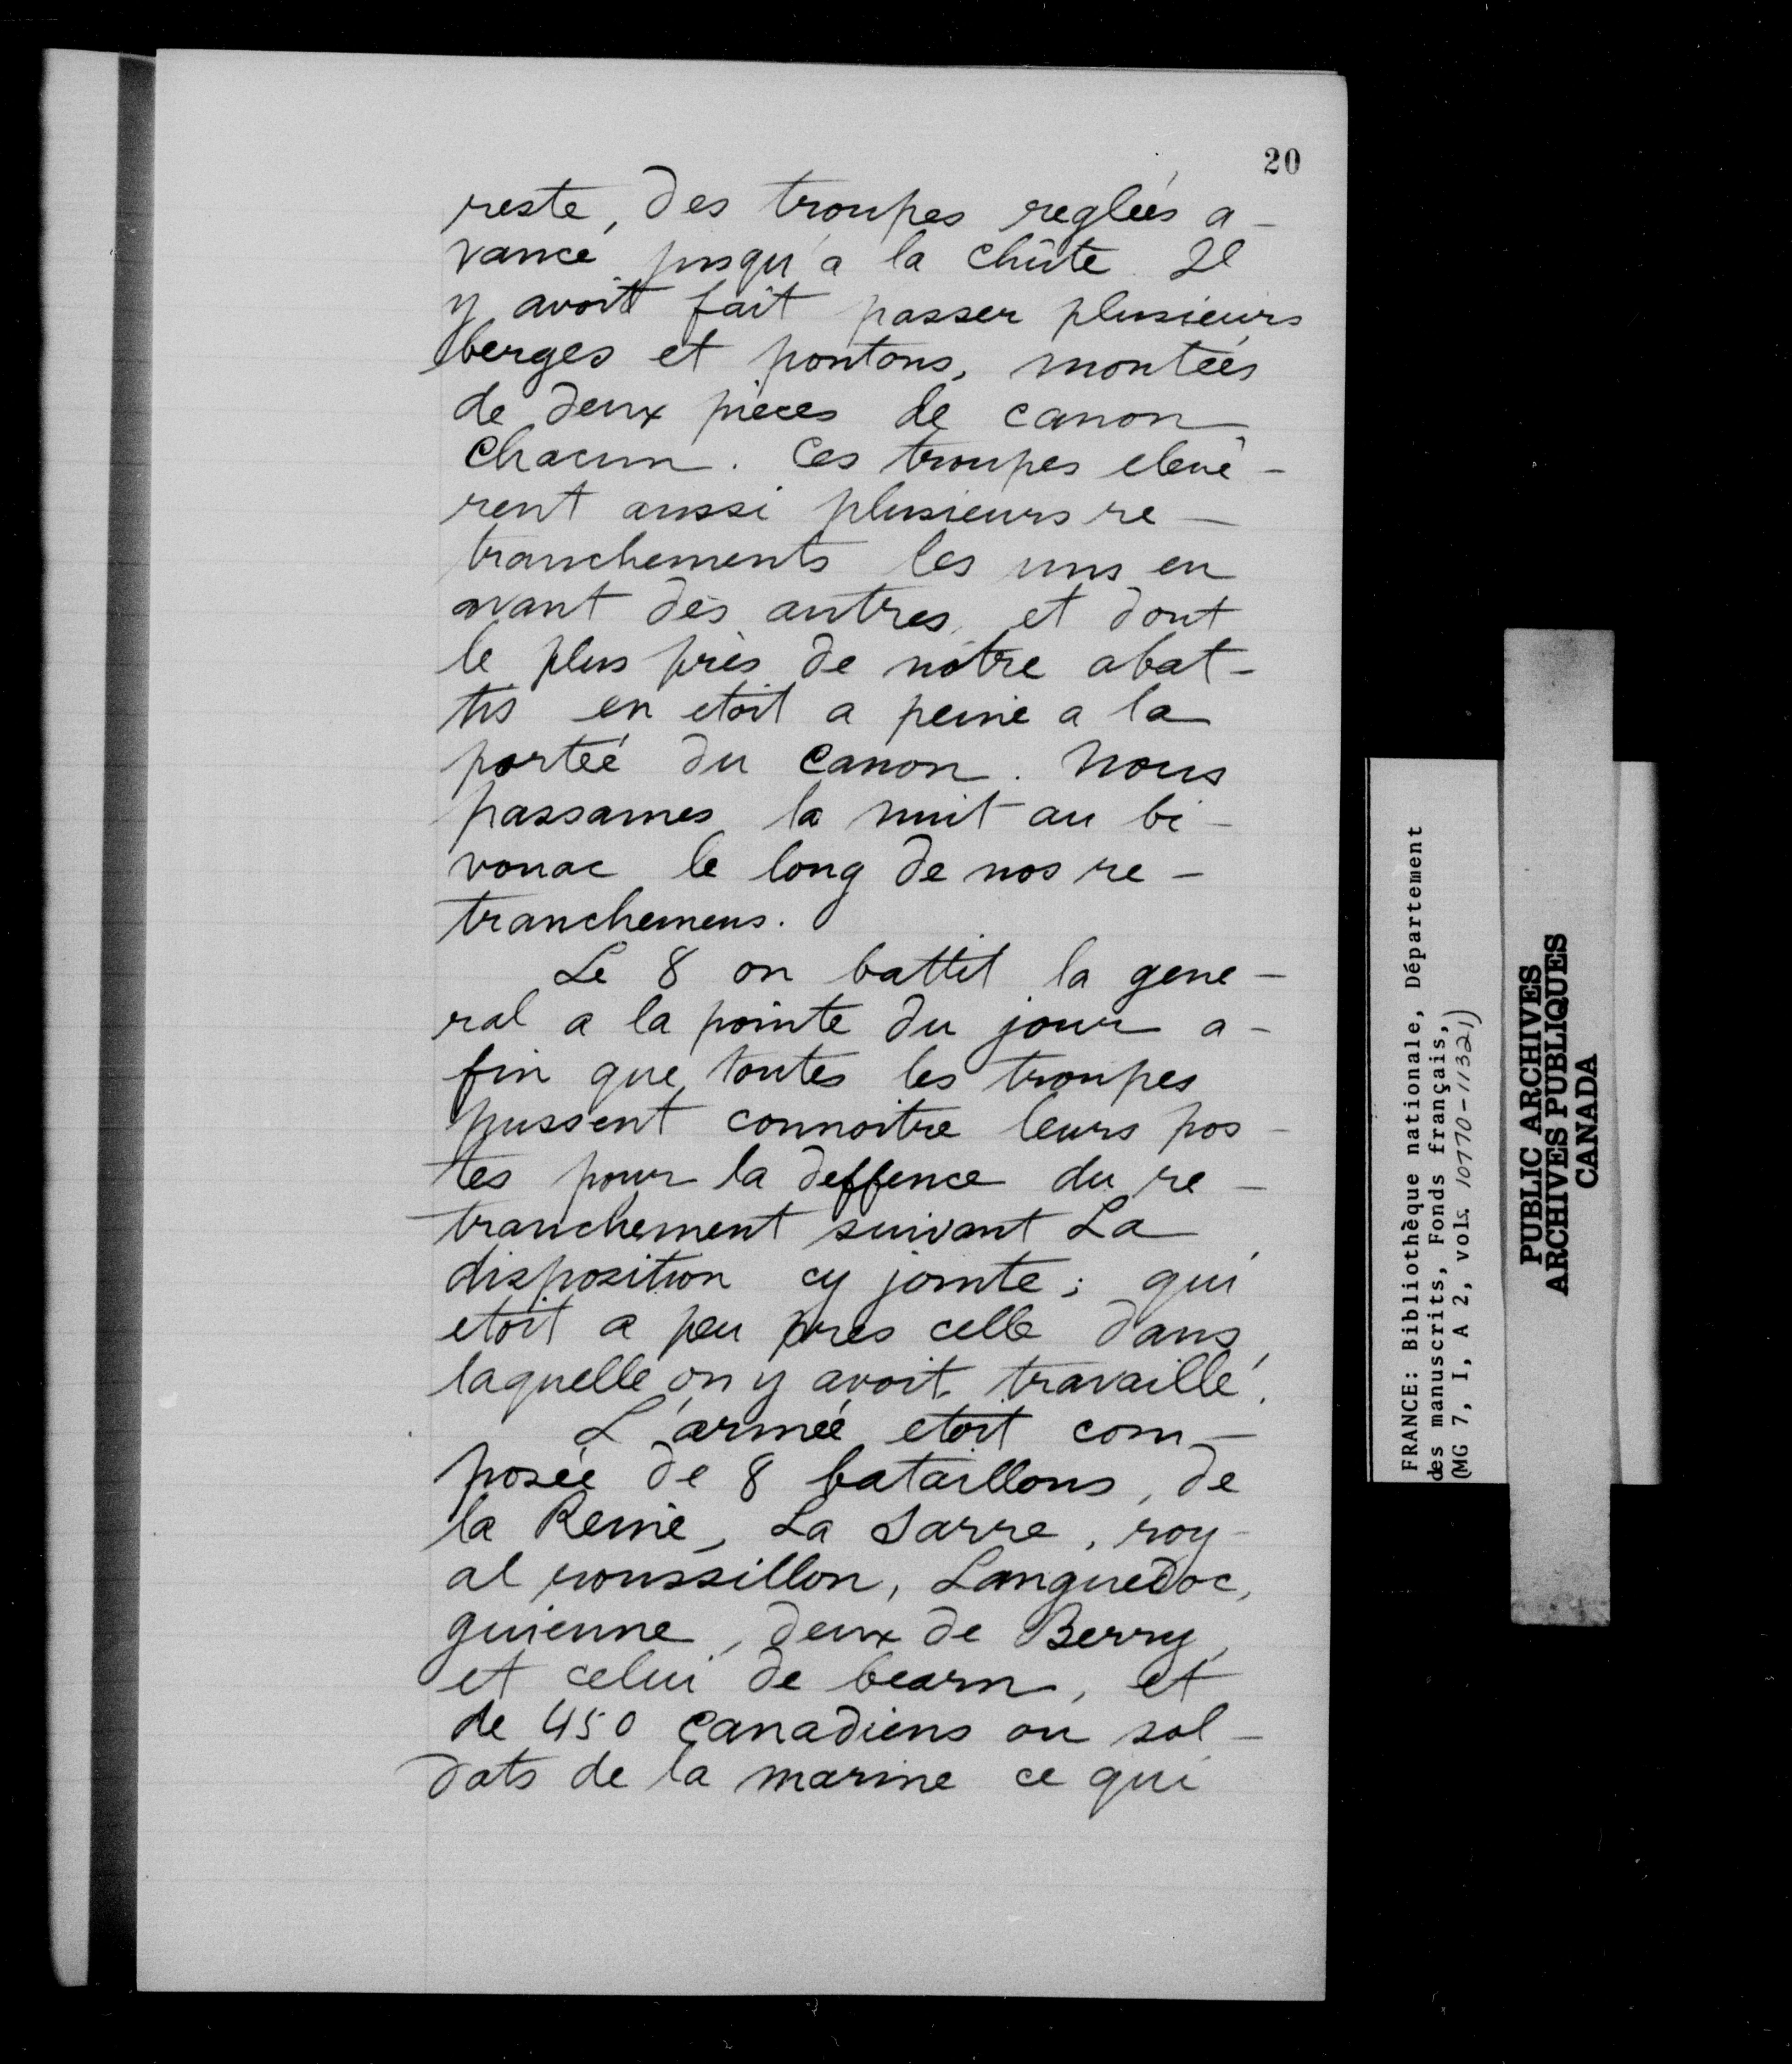 20
reste, des troupes regleés a-
vancé jusqu'a la chûte Il
y avoit fait passer plusieurs
berges et pontons, monteés
de deux pièces de canon
chacun. Ces troupes elevè-
rent aussi plusieurs re-
tranchements les uns en
avant des autres, et dont
le plus près de nôtre abat-
tis en etoit a peine a la
porteé du canon. Nous
passames la nuit au bi-
vouac le long de nos re-
tranchemens.
Le 8 on battit la gene-
ral a la pointe du jour a-
fin que toutes les troupes
pussent connoitre leurs pos-
tes pour la deffence du re-
tranchement suivant La
disposition cy jointe; qui
etoit a peu pres celle dans
laquelle on y avoit travaillé.
L'armeé etoit com-
poseé de 8 bataillons, de
la Reine, La Sarre, roy-
al roussillon, Languedoc,
guienne, deux de Berry,
et celui de bearn, et
de 450 Canadiens ou sol-
dats de la marine ce qui
FRANCE: Bibliothèque nationale, Département
des manuscrits, Fonds français,
(MG 7, I, A 2, vols. 10770-11321)
PUBLIC ARCHIVES
ARCHIVES PUBLIQUES
CANADA